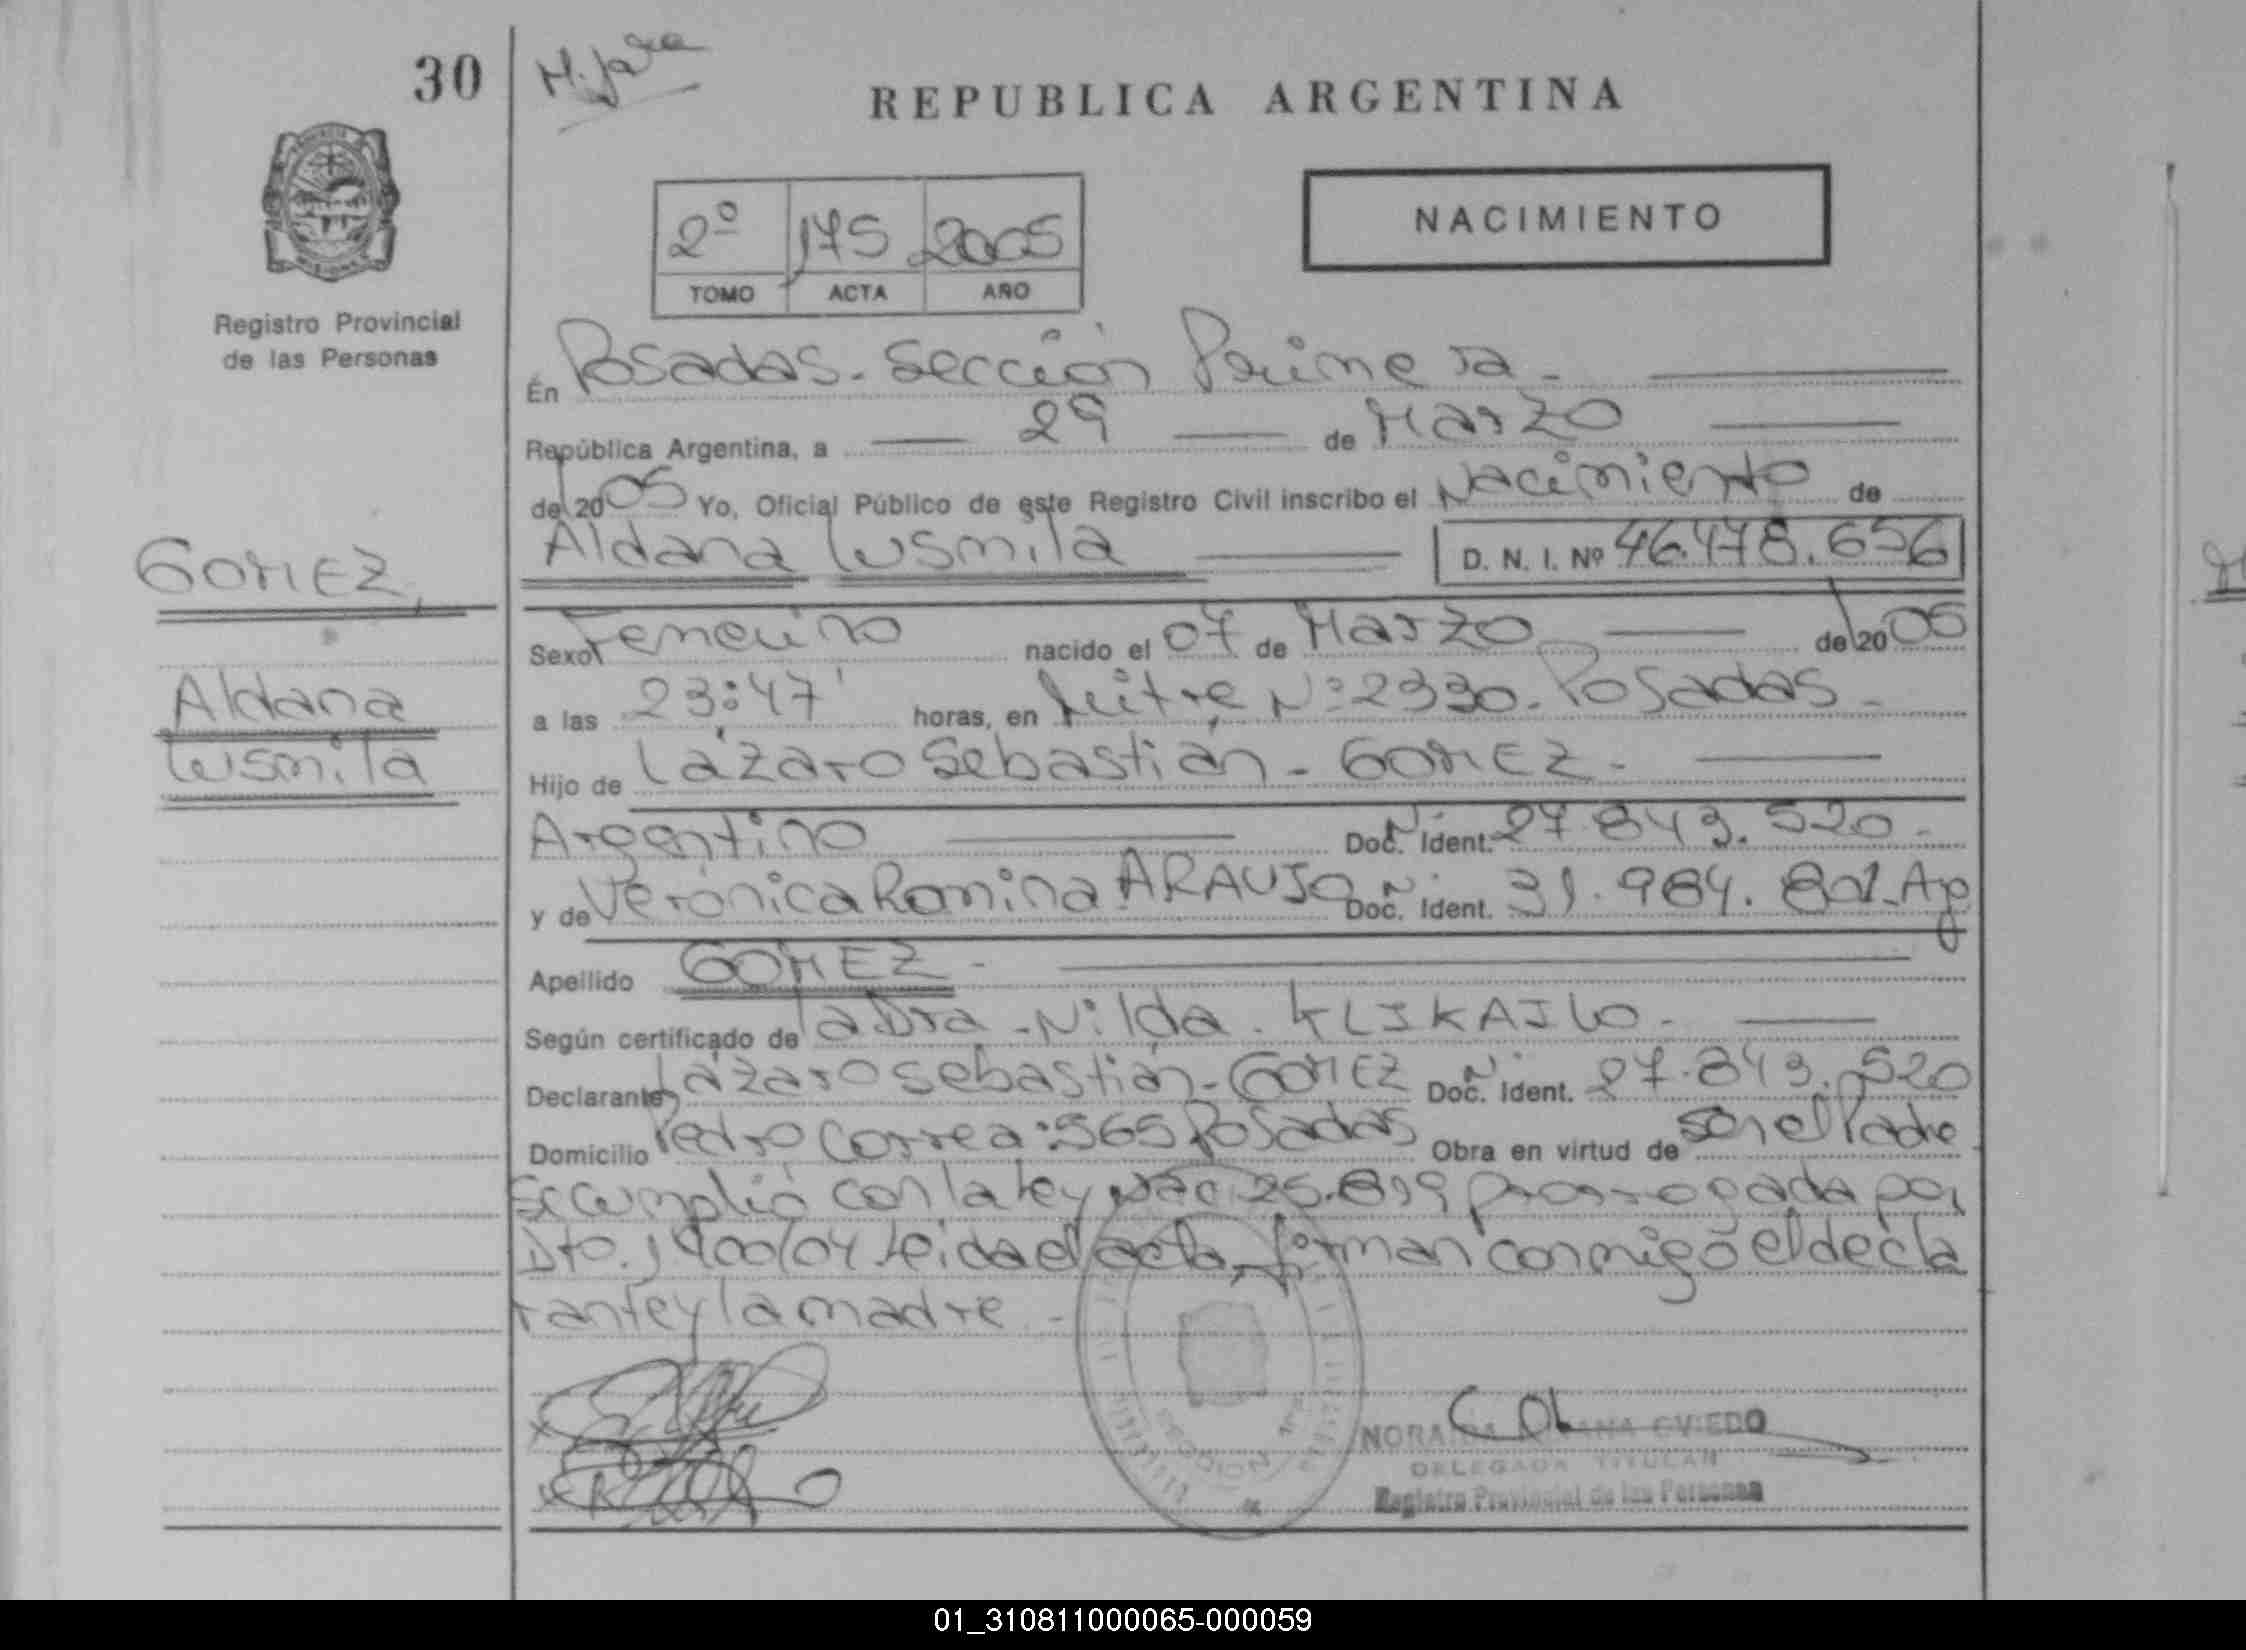 30
REPUBLICA ARGENTINA
NACIMIENTO
2º 175 2005
TOMO ACTA AÑO
Registro Provincial
de las Personas
En Posadas. Sección Primera.
República Argentina, a 29 de Marzo
del 2005 Yo, Oficial Público de este Registro Civil inscribo el Nacimiento de
Aldana Lusmila D. N. I. Nº 46.478.656
GOMEZ,
Aldana
Lusmila
Sexo Femenino nacido el 07 de Marzo del 2005
a las 23:47' horas, en Mitre Nº 2330. Posadas.
Hijo de Lázaro Sebastián - GOMEZ.
Argentino Doc. N. Ident. 27.843.520.
y de Verónica Romina ARAUJO Doc. N. Ident. 31.984.801. Ag
Apellido GOMEZ -
Según certificado de la Dra. Nilda. KLIKAILO.
Declarante Lázaro Sebastián - GOMEZ Doc. N. Ident. 27.843.520
Domicilio Pedro Correa: 565 Posadas Obra en virtud de ser el Padre
Se cumplió con la Ley Nac. 25.819 prorrogada por
Dto. 1900/04 Leida el acta, firman conmigo el decla
rante y la madre -
OVIEDO
DELEGADA TITULAR
Registro Provincial de las Personas
SECCION 1ra
01_310811000065-000059